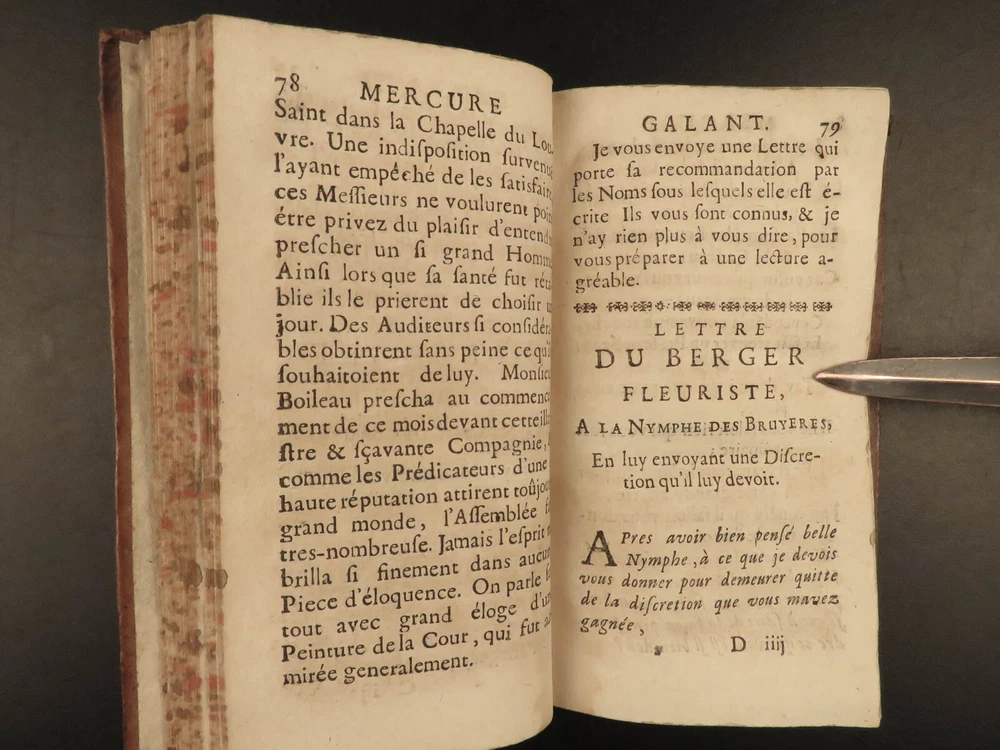 78 MERCURE
Saint dans la Chapelle du Lou-
vre. Une indiſpoſition ſurvenuë
l'ayant empéché de les ſatisfaire
ces Meſſieurs ne voulurent poin
étre privez du plaiſir d'entend
preſcher un ſi grand Homm
Ainſi lors que ſa ſanté fut réta
blie ils le prierent de choiſir u
jour. Des Auditeurs ſi conſidéra
bles obtinrent ſans peine ce qu'il
ſouhaitoient de luy. Monſieu
Boileau preſcha au commence
ment de ce mois devant cette illu
ſtre & ſçavante Compagnie,
comme les Prédicateurs d'une
haute réputation attirent toûjou
grand monde, l'Aſſemblée f
tres-nombreuſe. Jamais l'eſprit n
brilla ſi finement dans aucun
Piece d'éloquence. On parle ſ
tout avec grand éloge d'un
Peinture de la Cour, qui fut ad
mirée generalement.
GALANT. 79
Je vous envoye une Lettre qui
porte ſa recommandation par
les Noms ſous leſquels elle eſt é-
crite Ils vous ſont connus, & je
n'ay rien plus à vous dire, pour
vous préparer à une lecture a-
gréable.
LETTRE
DU BERGER
FLEURISTE,
A LA NYMPHE DES BRUYERES,
En luy envoyant une Diſcre-
tion qu'il luy devoit.
APres avoir bien penſé belle
Nymphe, à ce que je devois
vous donner pour demeurer quitte
de la diſcretion que vous mavez
gagnée,
D iiij